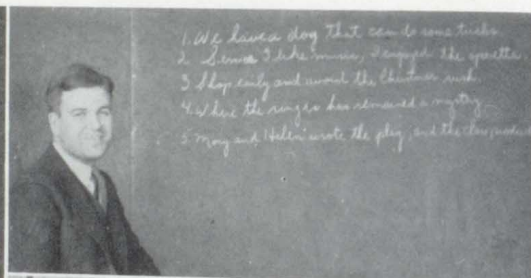 1. We have a dog that can do some tricks.
2 Since I like music, I enjoyed the operetta.
3 Shop early and avoid the Christmas rush.
4. Where the ring is has remained a mystery.
5. Mary and Helen wrote the play, and the class